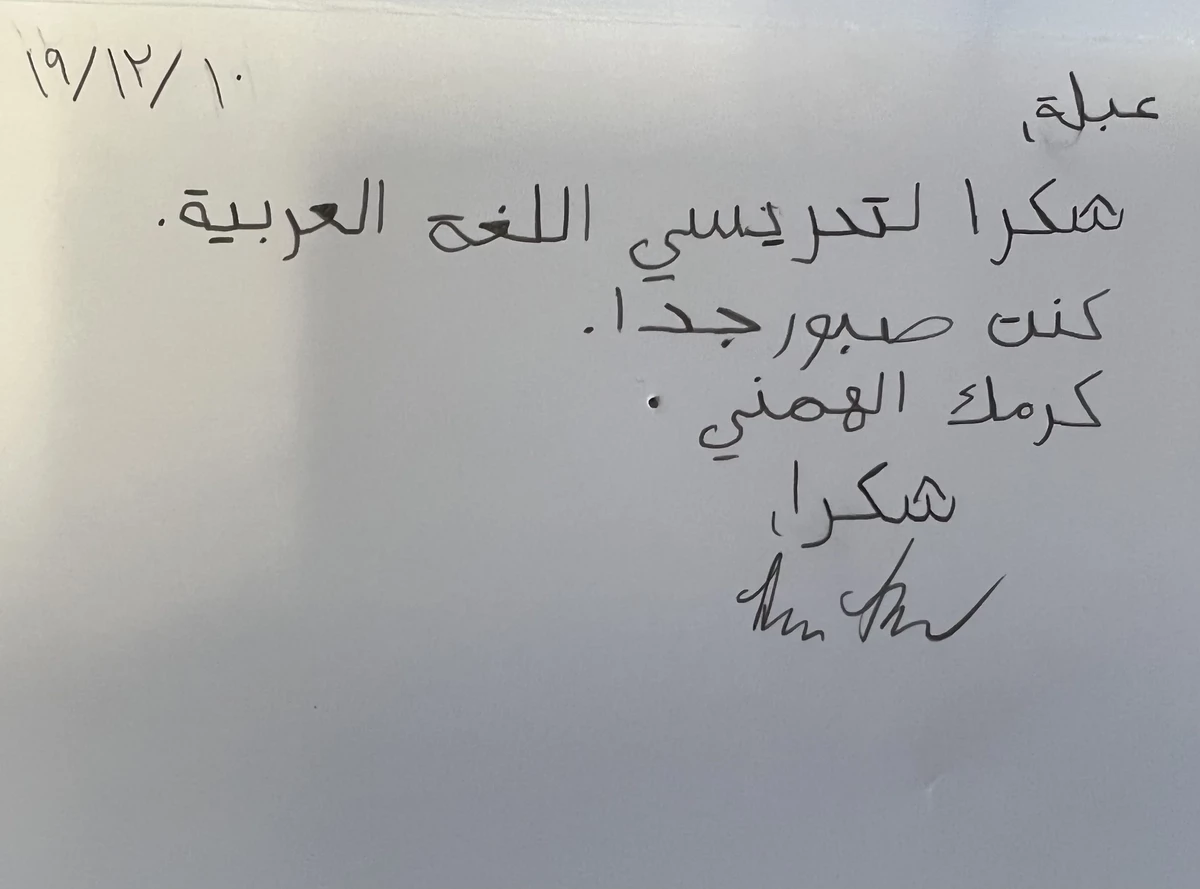 ١٩/١٢/١٠
عبلة،
شكرا لتدريسي اللغة العربية.
كنت صبور جدا.
كرمك الهمني.
شكرا،